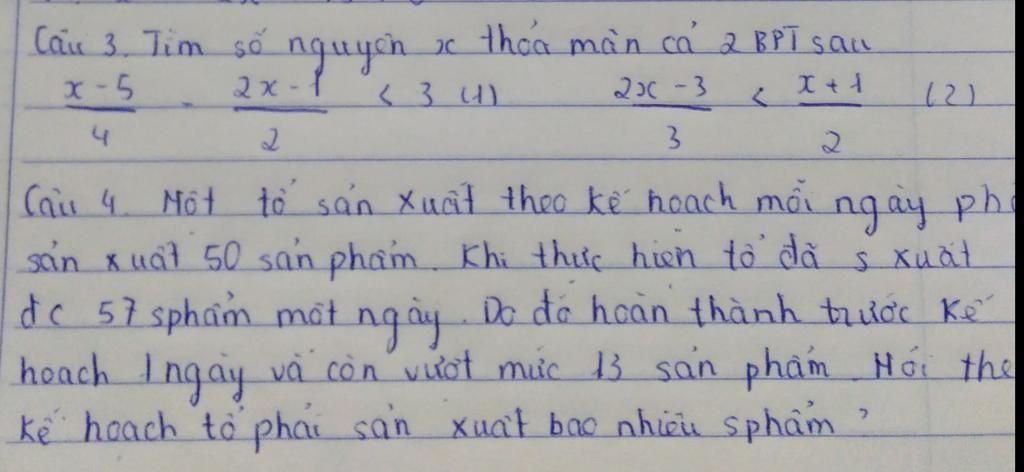 Câu 3. Tìm số nguyên x thỏa mãn cả 2 BPT sau
x - 5 / 4 - 2x - 1 / 2 < 3 (1) 2x - 3 / 3 < x + 1 / 2 (2)
Câu 4. Một tổ sản xuất theo kế hoạch mỗi ngày ph
sản xuất 50 sản phẩm. Khi thực hiện tổ đã s xuất
đc 57 sphẩm một ngày. Do đó hoàn thành trước kế
hoạch 1 ngày và còn vượt mức 13 sản phẩm. Hỏi the
kế hoạch tổ phải sản xuất bao nhiêu sphẩm ?